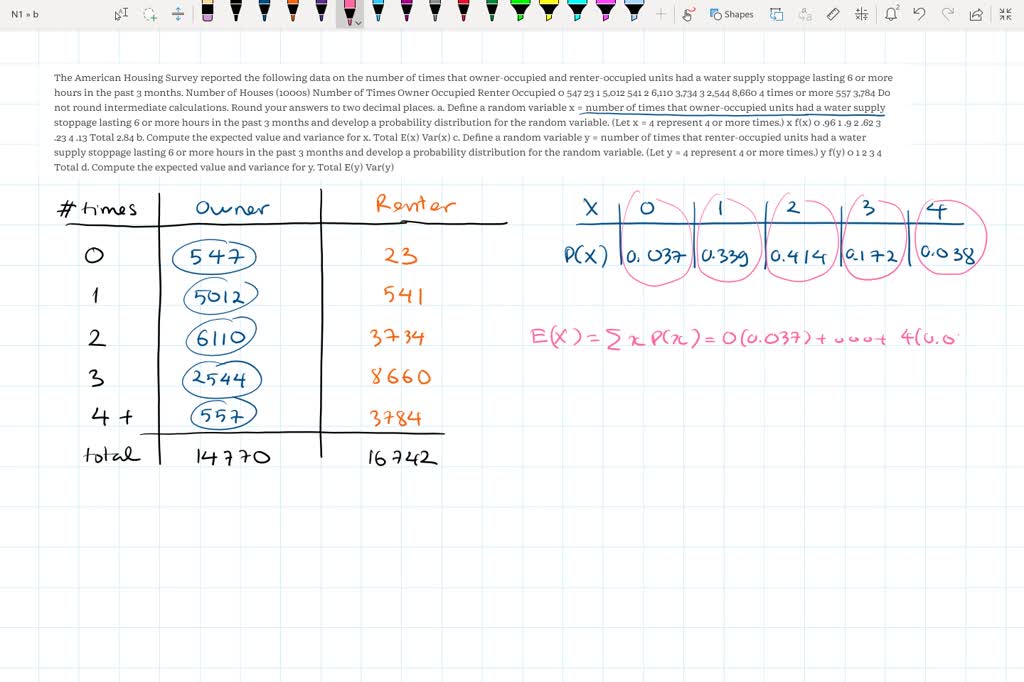 N1 » b
Shapes
2
The American Housing Survey reported the following data on the number of times that owner-occupied and renter-occupied units had a water supply stoppage lasting 6 or more
hours in the past 3 months. Number of Houses (1000s) Number of Times Owner Occupied Renter Occupied 0 547 23 1 5,012 541 2 6,110 3,734 3 2,544 8,660 4 times or more 557 3,784 Do
not round intermediate calculations. Round your answers to two decimal places. a. Define a random variable x = number of times that owner-occupied units had a water supply
stoppage lasting 6 or more hours in the past 3 months and develop a probability distribution for the random variable. (Let x = 4 represent 4 or more times.) x f(x) 0 .96 1 .9 2 .62 3
.23 4 .13 Total 2.84 b. Compute the expected value and variance for x. Total E(x) Var(x) c. Define a random variable y = number of times that renter-occupied units had a water
supply stoppage lasting 6 or more hours in the past 3 months and develop a probability distribution for the random variable. (Let y = 4 represent 4 or more times.) y f(y) 0 1 2 3 4
Total d. Compute the expected value and variance for y. Total E(y) Var(y)
# times Owner Renter
0 547 23
1 5012 541
2 6110 3734
3 2544 8660
4+ 557 3784
total 14770 16742
X 0 1 2 3 4
P(X) 0.037 0.339 0.414 0.172 0.038
E(X) = Σ x P(x) = 0(0.037) + ... + 4(0.0